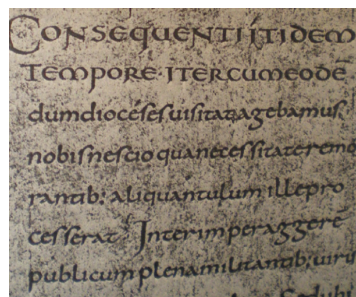 CONSEQUENTI ITIDEM
TEMPORE· ITER CUM EODĒ
dum dioceses uisitat agebamus.
nobis nescio qua necessitate remo
rantib: aliquantulum ille pro
cesserat Interim per aggerē
publicum plena militantib: uiris